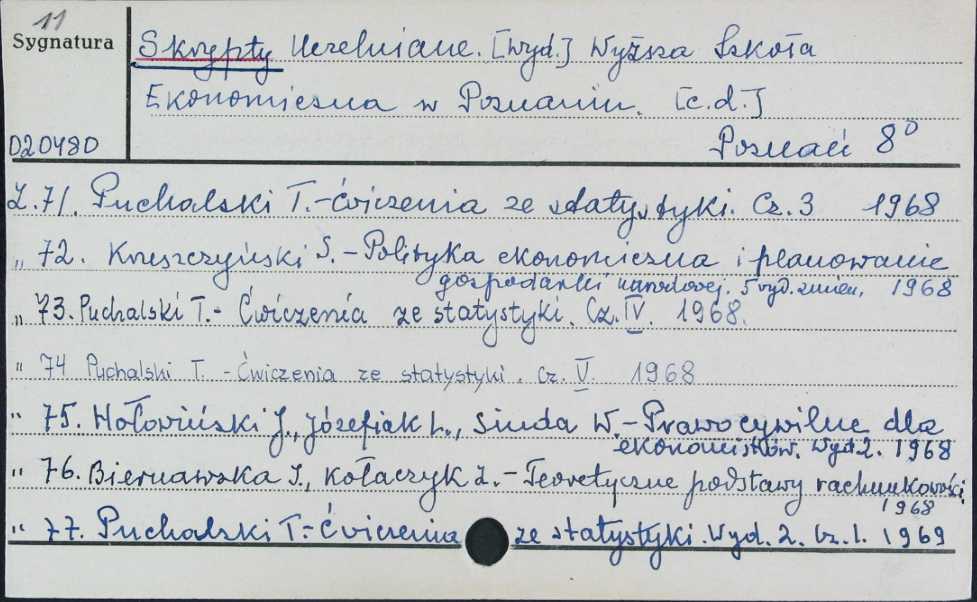 11
Sygnatura
Skrypty Uczelniane. [Wyd.] Wyższa Szkoła
Ekonomiczna w Poznaniu. [c.d.]
D20480
Poznań 8°
Z. 71. Puchalski T. - Ćwiczenia ze statystyki. Cz. 3 1968
„ 72. Kruszczyński S. - Polityka ekonomiczna i planowanie
gospodarki narodowej. 5 wyd. zmien. 1968
„ 73. Puchalski T. - Ćwiczenia ze statystyki. Cz. IV. 1968.
" 74 Puchalski T. - Ćwiczenia ze statystyki. Cz. V. 1968
" 75. Hołowiński J., Józefiak L., Siuda W. - Prawo cywilne dla
ekonomistów. Wyd 2. 1968
" 76. Biernawska I., Kołaczyk Z. - Teoretyczne podstawy rachunkowości
1968
" 77. Puchalski T. - Ćwiczenia ze statystyki. Wyd. 2. Cz. 1. 1969